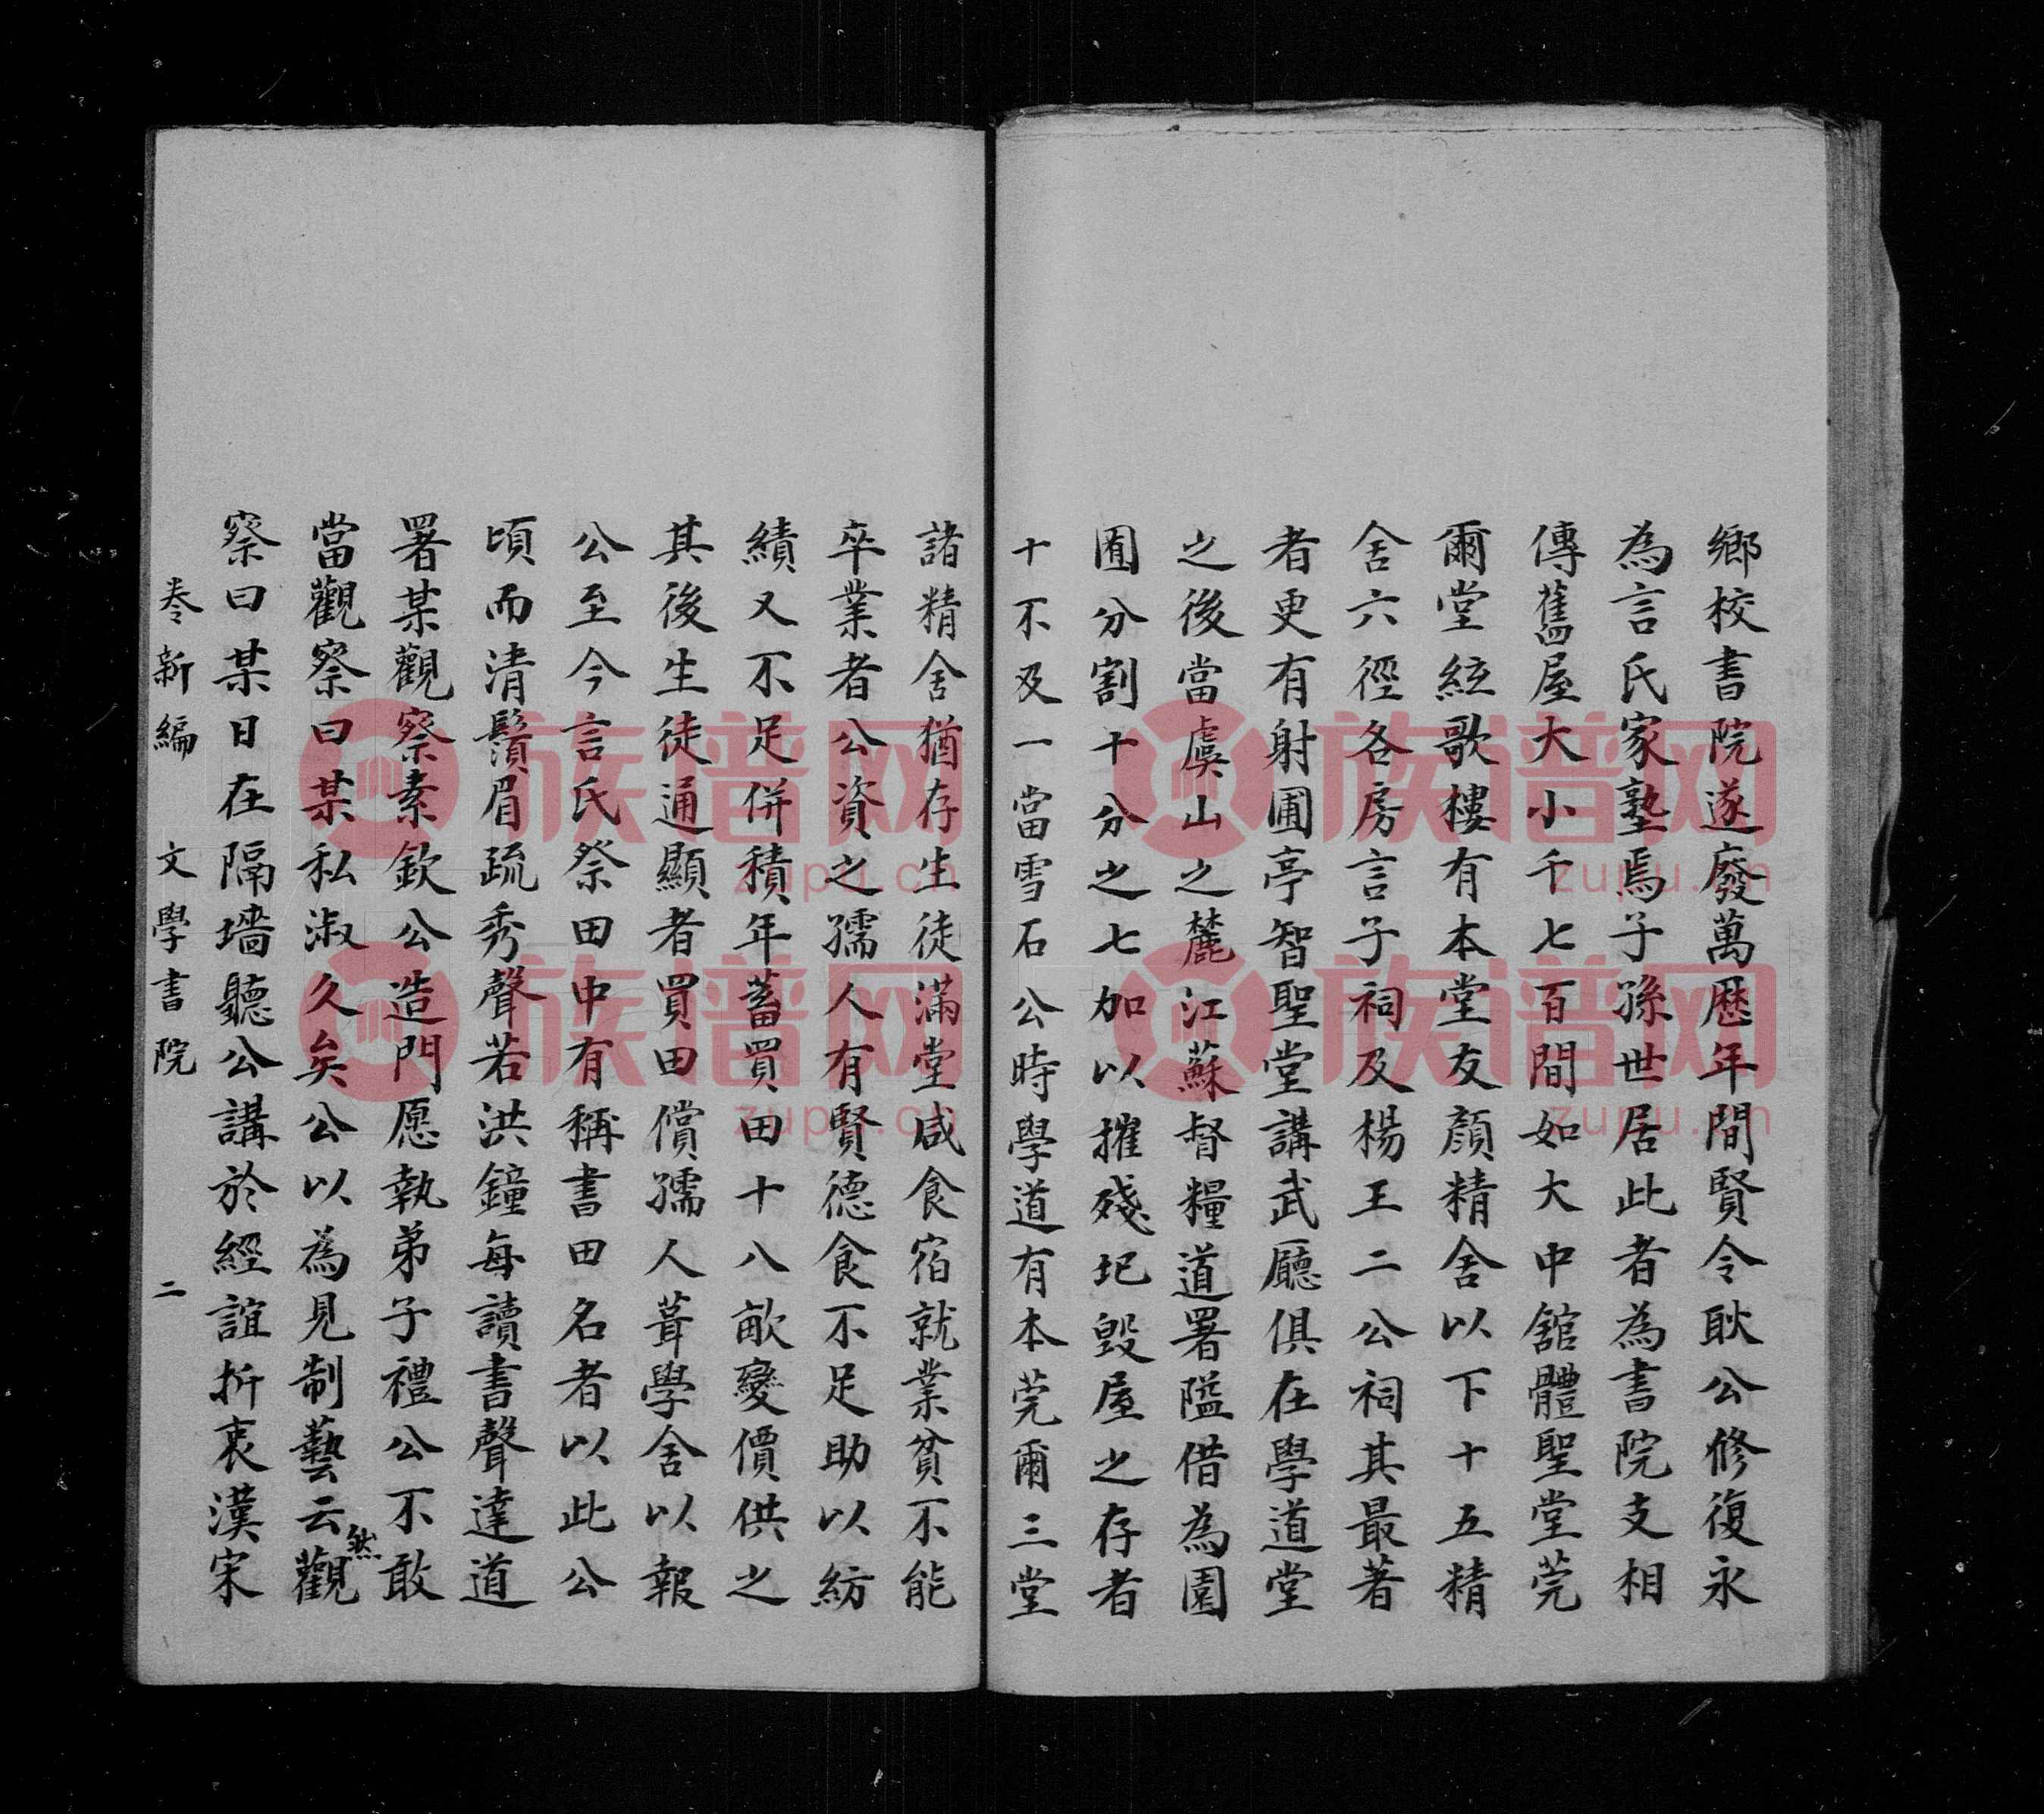 鄉校書院遂廢萬歷年間賢令耿公修復永
為言氏家塾焉子孫世居此者為書院支相
傳舊屋大小千七百間如大中舘體聖堂莞
爾堂絃歌樓有本堂友顏精舍以下十五精
舍六徑各房言子祠及楊王二公祠其最著
者更有射圃亭智聖堂講武廳俱在學道堂
之後當虞山之麓江蘇督糧道署隘借為園
囿分割十分之七加以摧殘圯毀屋之存者
十不及一當雪石公時學道有本莞爾三堂
諸精舍猶存生徒滿堂咸食宿就業貧不能
卒業者公資之孺人有賢德食不足助以紡
績又不足併積年蓄買田十八畝變價供之
其後生徒通顯者買田償孺人葺學舍以報
公至今言氏祭田中有稱書田名者以此公
頎而清鬚眉疏秀聲若洪鐘每讀書聲達道
署某觀察素欽公造門愿執弟子禮公不敢
當觀察曰某私淑久矣公以為見制藝云然觀
察曰某日在隔墻聽公講於經誼折衷漢宋
卷新編 文學書院 二
族谱网 zupu.cn
族谱网 zupu.cn
族谱网 zupu.cn
族谱网 zupu.cn